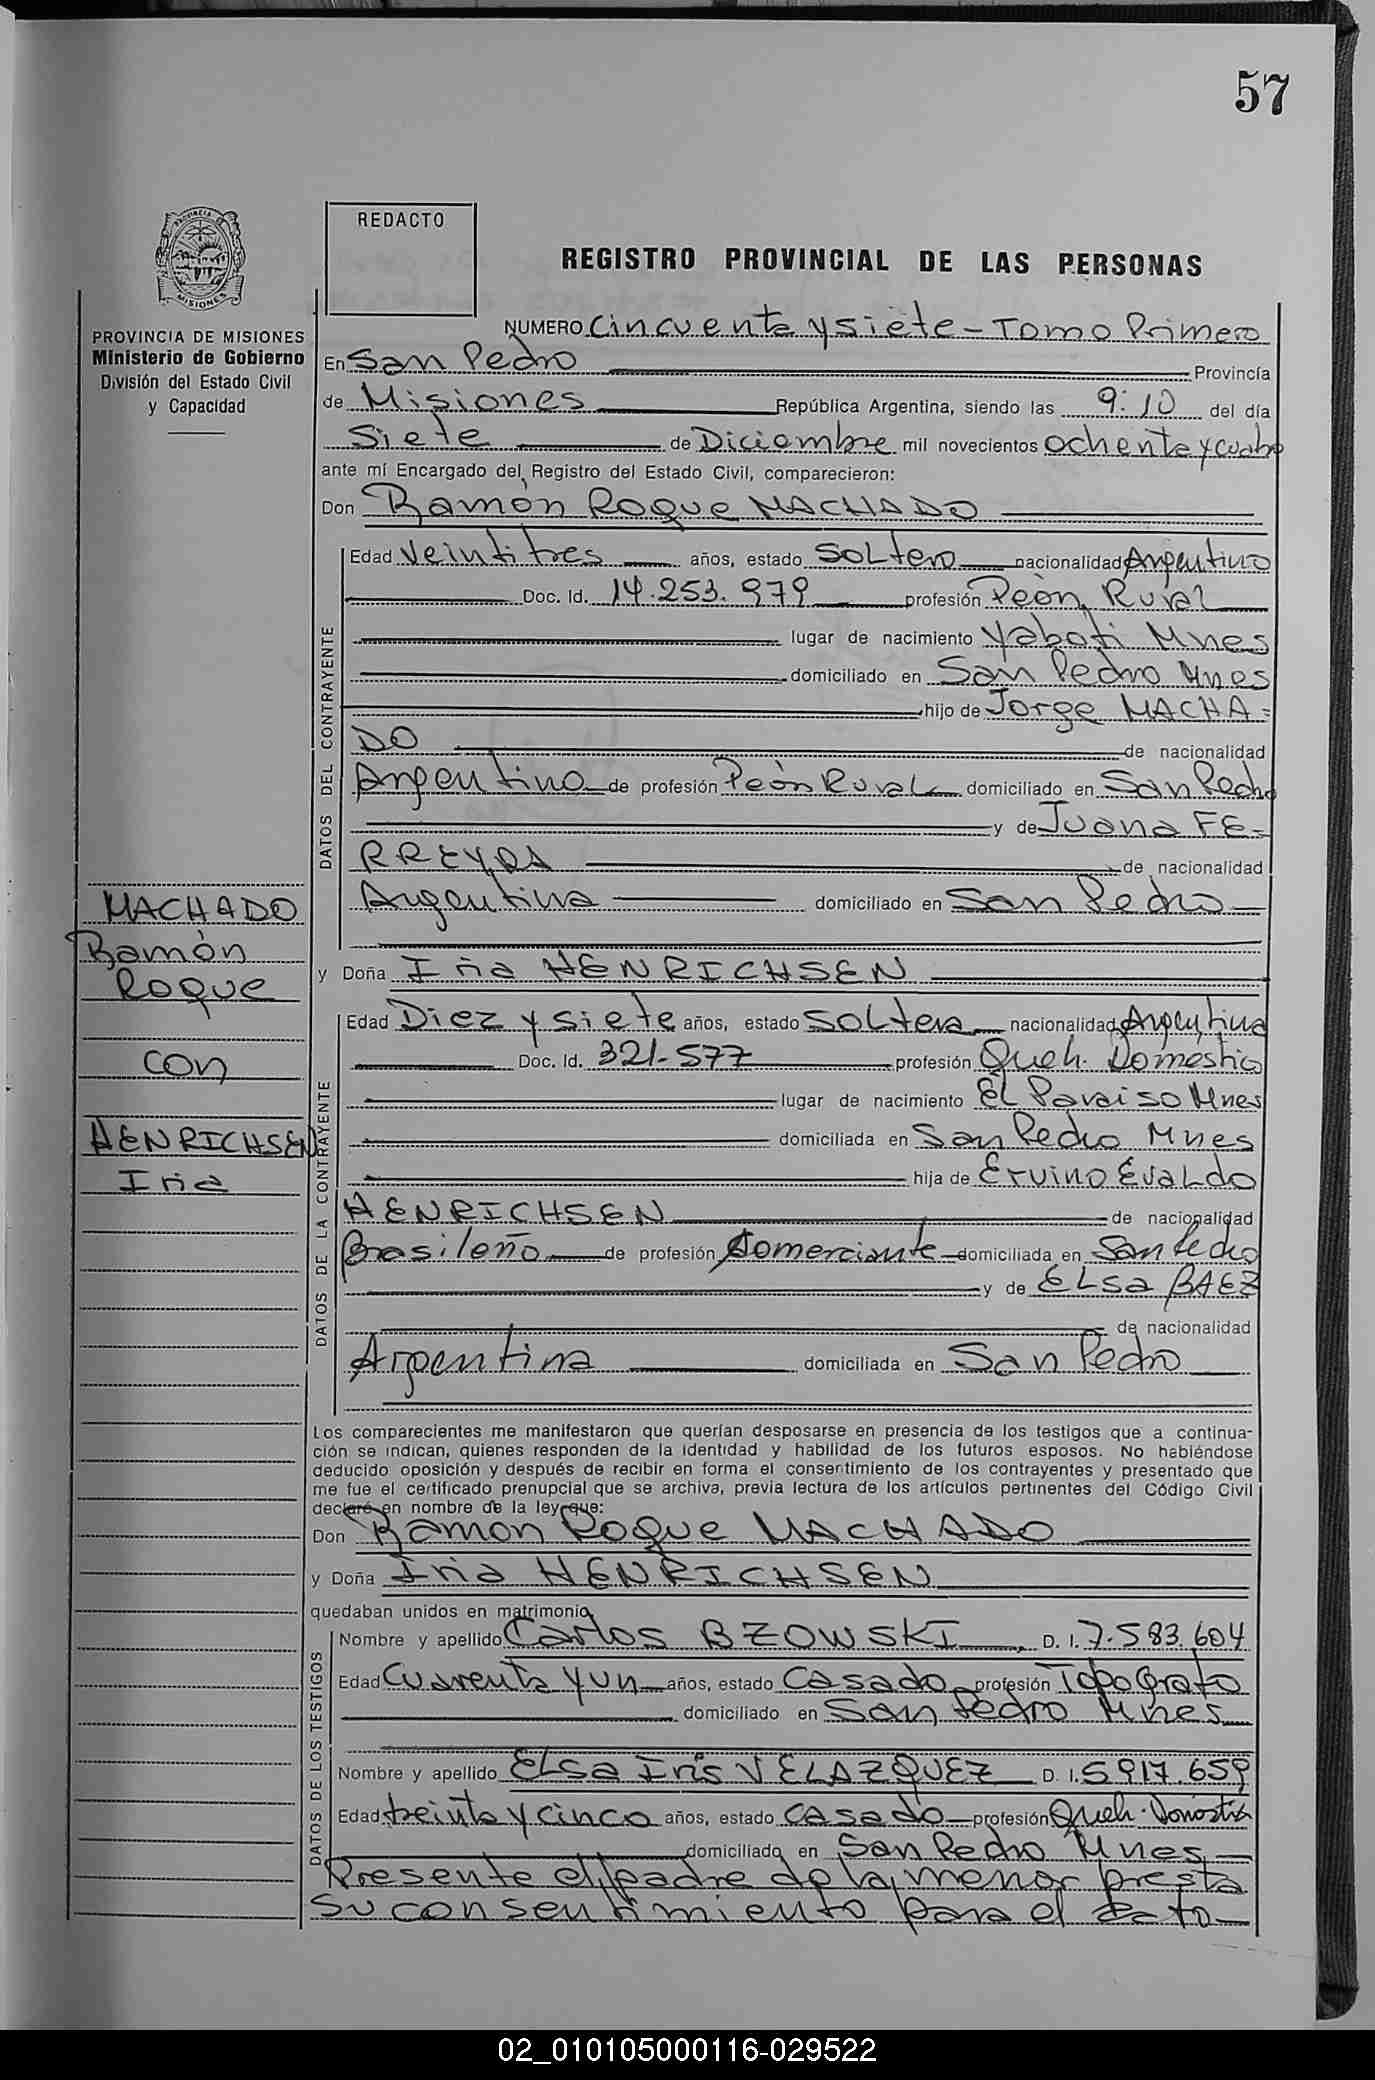 57
REDACTO
REGISTRO PROVINCIAL DE LAS PERSONAS
PROVINCIA DE MISIONES
Ministerio de Gobierno
División del Estado Civil
y Capacidad
NUMERO Cincuenta y siete - Tomo Primero
En San Pedro Provincia
de Misiones República Argentina, siendo las 9:10 del día
Siete de Diciembre mil novecientos ochenta y cuatro
ante mí Encargado del Registro del Estado Civil, comparecieron:
Don Ramón Roque MACHADO
DATOS DEL CONTRAYENTE
Edad Veintitres años, estado SOLtero nacionalidad Argentino
Doc. Id. 14.253.979 profesión Peón Rural
lugar de nacimiento Yaboti Mnes
domiciliado en San Pedro Mnes
hijo de Jorge MACHA=
DO de nacionalidad
Argentino de profesión Peón Rural domiciliado en San Pedro
y de Juana FE-
RREYRA de nacionalidad
Argentina domiciliado en San Pedro
MACHADO
Ramón
Roque
con
HENRICHSEN
Iria
y Doña Iria HENRICHSEN
DATOS DE LA CONTRAYENTE
Edad Diez y siete años, estado SOLtera nacionalidad Argentina
Doc. Id. 321.577 profesión Queh. Domestico
lugar de nacimiento EL Paraiso Mnes
domiciliada en San Pedro Mnes
hija de Ervino EvaLdo
HENRICHSEN de nacionalidad
Brasileño de profesión Comerciante domiciliada en San Pedro
y de ELsa BAEZ
de nacionalidad
Argentina domiciliada en San Pedro
Los comparecientes me manifestaron que querían desposarse en presencia de los testigos que a continua-
ción se indican, quienes responden de la identidad y habilidad de los futuros esposos. No habiéndose
deducido oposición y después de recibir en forma el consentimiento de los contrayentes y presentado que
me fue el certificado prenupcial que se archiva, previa lectura de los artículos pertinentes del Código Civil
declaré en nombre de la ley que:
Don Ramon Roque MACHADO
y Doña Iria HENRICHSEN
quedaban unidos en matrimonio
DATOS DE LOS TESTIGOS
Nombre y apellido Carlos BZOWSKI D. I. 7.583.604
Edad Cuarenta y un años, estado Casado profesión Topografo
domiciliado en San Pedro Mnes
Nombre y apellido ELsa Iris VELAZQUEZ D. I. 5917.659
Edad treinta y cinco años, estado casado profesión Queh. Domestico
domiciliado en San Pedro Mnes
Presente el padre de la menor presta
su consentimiento para el acto
02_010105000116-029522